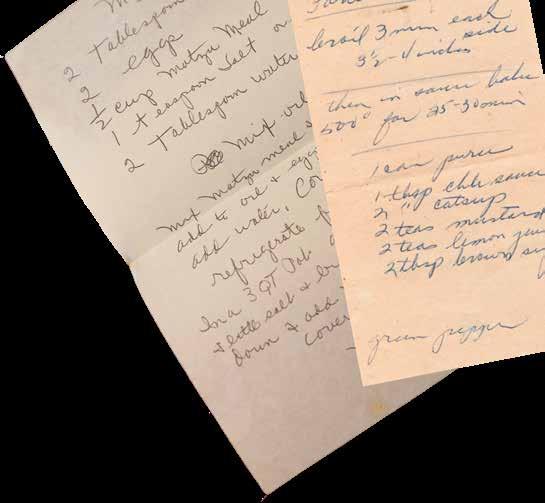 2 Tablespoon
2 eggs
1/2 cup Matzu Meal
1 teaspoon Salt or
2 Tablespoon water
Mix oil
Mix Matzu meal &
add to oil & eggs
add water. Cov
refrigerate f
In a 3 QT Pot
little salt & br
down & add
cover
broil 3 min each
side
3 1/2 - 4 inches
then in sauce bake
500° for 25-30 min
1 can puree
1 tbsp chili sauce
2 " catsup
2 teas mustard
2 teas lemon jui
2 tbsp brown su
green pepper